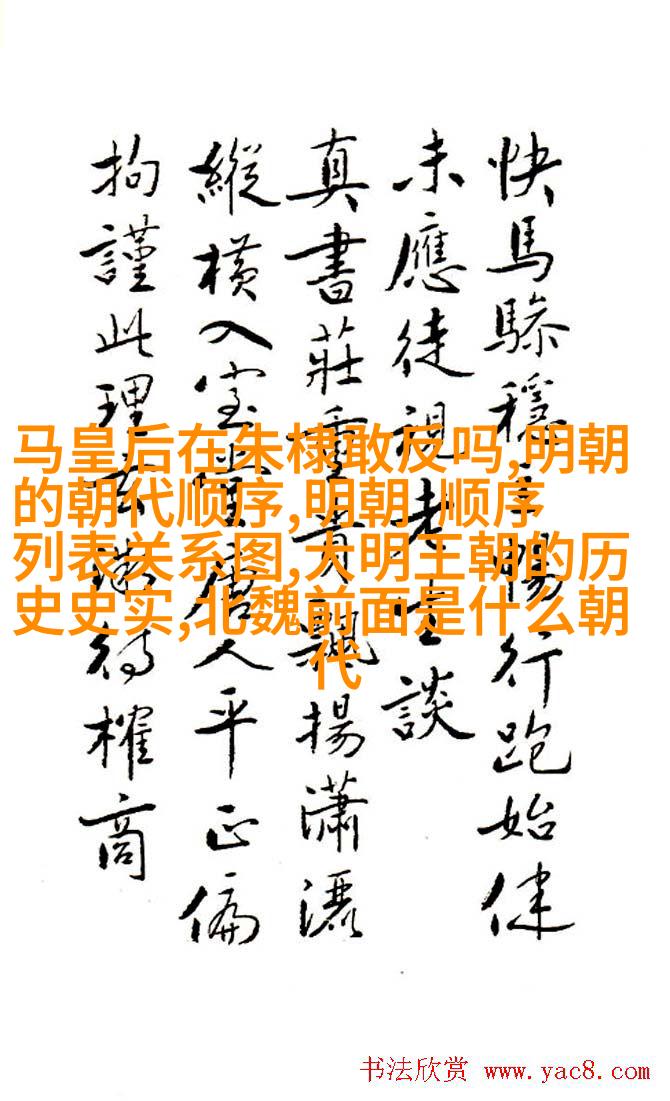 快馬穩暢行跑始
未應徒視老生談
真書莊重貴飄揚瀟灑
縱橫入室唐人平正偏
拘謹此理待榷商
马皇后在朱棣敢反吗,明朝
的朝代顺序,明朝 顺序
列表关系图,大明王朝的历
史史实,北魏前面是什么朝
代
书法欣赏 www.yac8.com